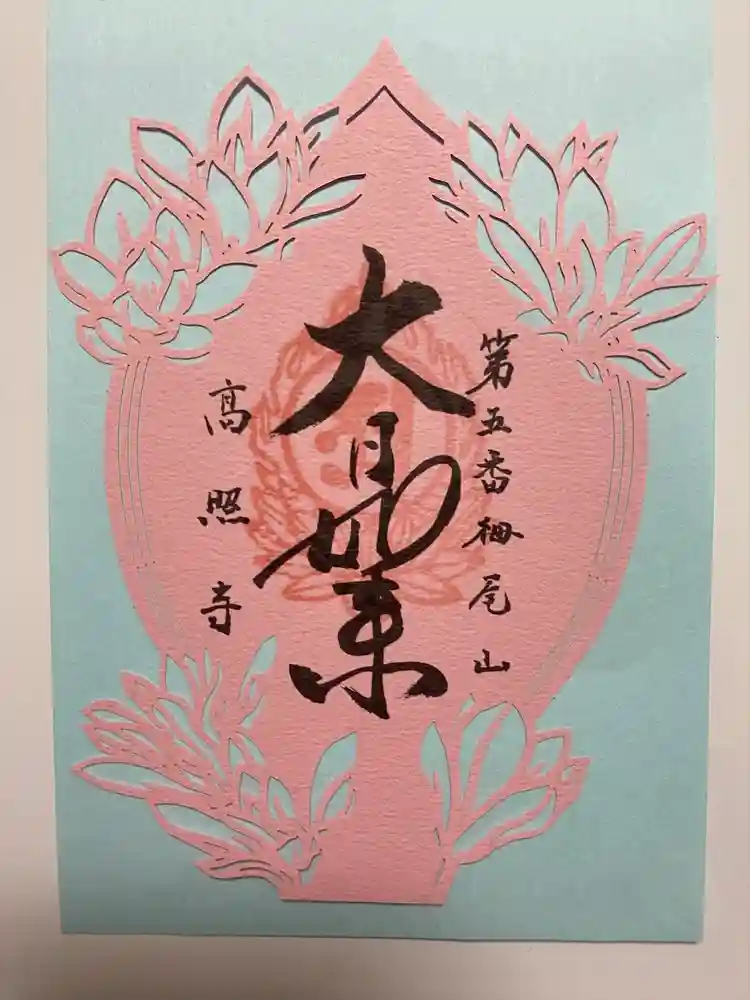 第五番栂尾山
大日如来
高照寺